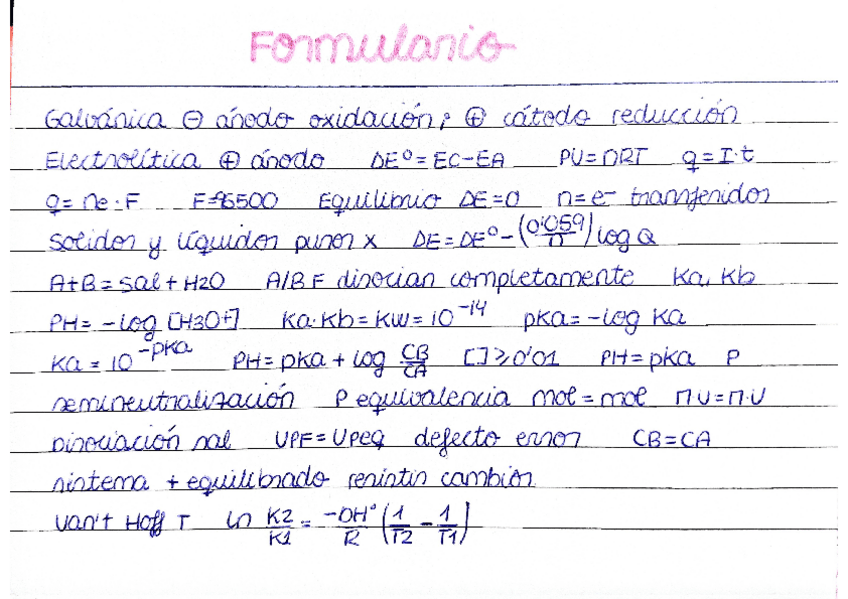 Formulario
Galvánica ⊖ ánodo oxidación; ⊕ cátodo reducción
Electrolítica ⊕ ánodo ΔEº = EC-EA PV = nRT q = I·t
q = ne·F F=96500 Equilibrio ΔE=0 n=e⁻ transferidos
sólidos y líquidos puros x ΔE=ΔEº-(0'059/n) log Q
A+B = sal + H2O A/B F disocian completamente Ka, Kb
PH = -log [H3O+] Ka·Kb = Kw = 10⁻¹⁴ pKa = -log Ka
Ka = 10^-pKa PH = pKa + log CB/CA [ ] ≥ 0'01 PH = pKa P
semineutralización P equivalencia mol = mol M·V = M·V
Disociación sal VPF = VPeq defecto error CB = CA
sistema + equilibrado resistir cambios
Van't Hoff T ln K2/K1 = -ΔHº/R (1/T2 - 1/T1)